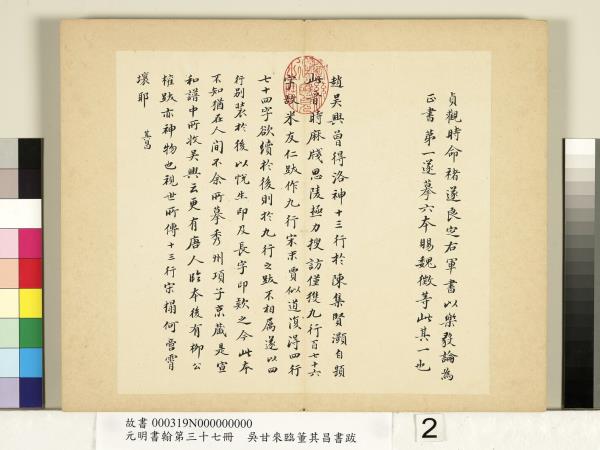 貞觀時命褚遂良定右軍書以樂毅論為
正書第一遂摹六本賜魏徵等此其一也
趙吳興曾得洛神十三行於陳集賢灝自題
此晉時麻牋思陵極力搜訪僅獲九行百七十六
字故米友仁跋作九行宋末賈似道復得四行
七十四字欲續於後則於九行之跋不相屬遂以四
行別裝於後以悅生印及長字印款之今此本
不知猶在人間不余所摹秀州項子京藏是宣
和譜中所收吳興云更有唐人臨本後有柳公
權跋亦神物也視世所傳十三行宋榻何啻霄
壤耶
其昌
故書 000319N000000000
元明書翰第三十七冊 吳甘來臨董其昌書跋
2